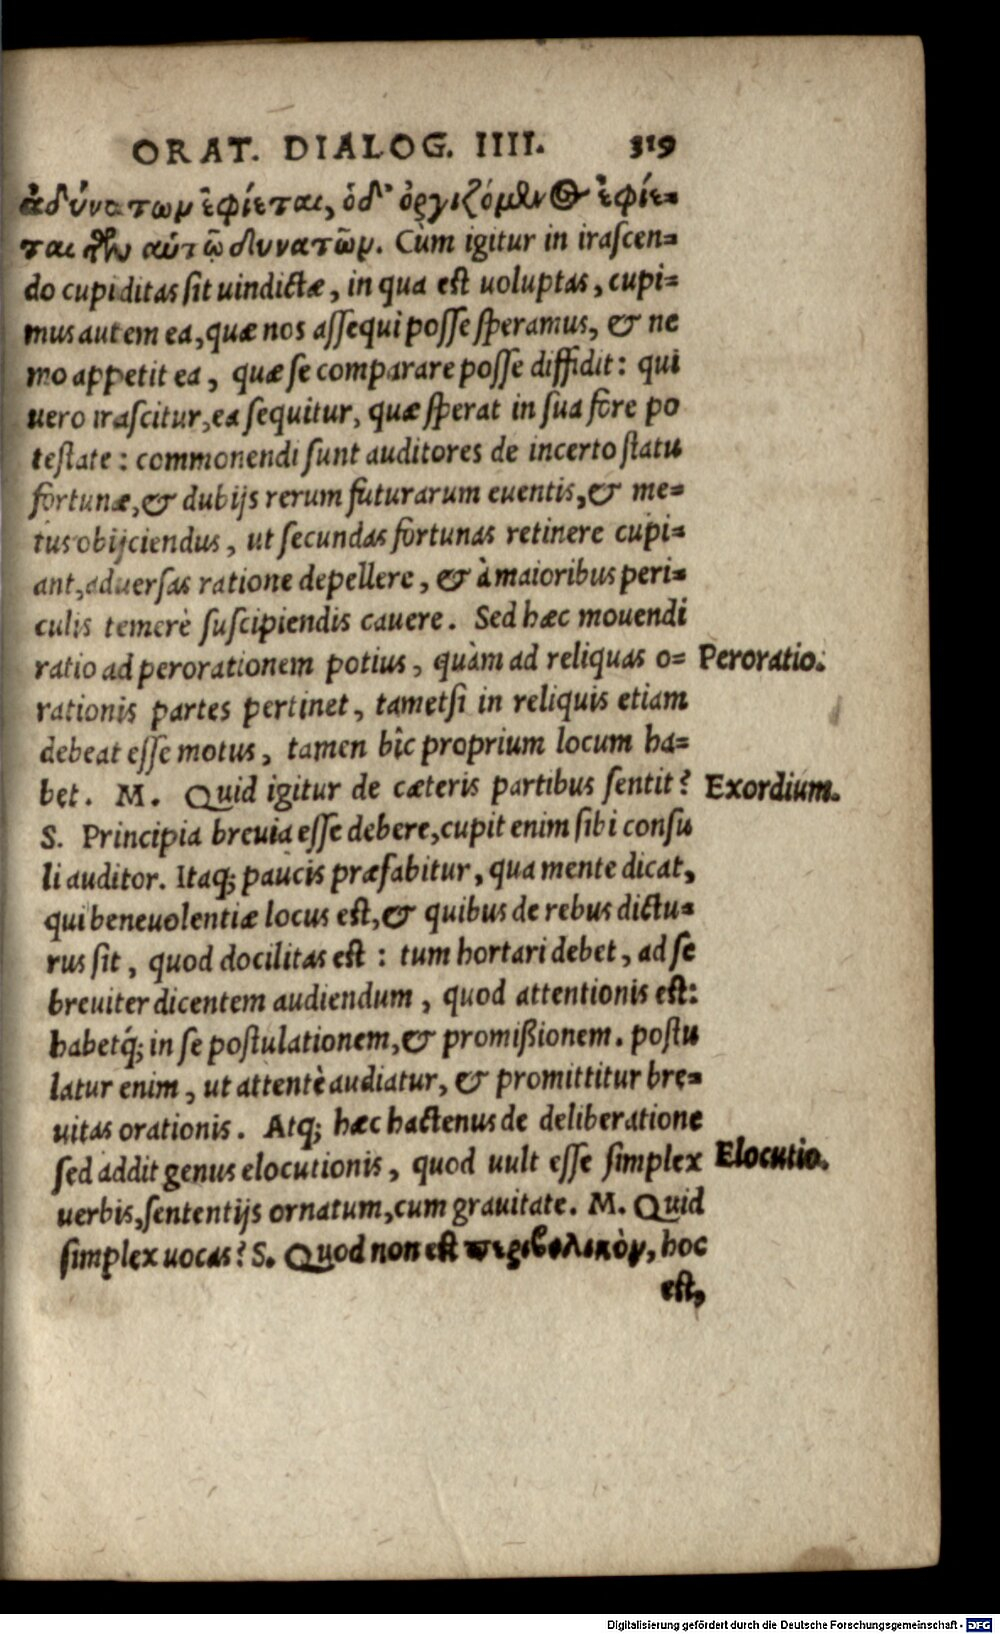 ORAT. DIALOG. IIII. 319
ἀδύνατων ἐφίεται, ὁδ' ὀργιζόμενος ἐφίε=
ται τῶν αὑτῷ δυνατῶν. Cùm igitur in irascen=
do cupiditas sit uindictæ, in qua est uoluptas, cupi=
mus autem ea, quæ nos assequi posse speramus, & ne
mo appetit ea, quæ se comparare posse diffidit: qui
uero irascitur, ea sequitur, quæ sperat in sua fore po
testate: commonendi sunt auditores de incerto statu
fortunæ, & dubijs rerum futurarum euentis, & me=
tus obijciendus, ut secundas fortunas retinere cupi=
ant, aduersas ratione depellere, & à maioribus peri=
culis temerè suscipiendis cauere. Sed hæc mouendi
ratio ad perorationem potius, quàm ad reliquas o= Peroratio.
rationis partes pertinet, tametsi in reliquis etiam
debeat esse motus, tamen hîc proprium locum ha=
bet. M. Quid igitur de cæteris partibus sentit? Exordium.
S. Principia breuia esse debere, cupit enim sibi consu
li auditor. Itaq; paucis præfabitur, qua mente dicat,
qui beneuolentiæ locus est, & quibus de rebus dictu=
rus sit, quod docilitas est: tum hortari debet, ad se
breuiter dicentem audiendum, quod attentionis est:
habetq́; in se postulationem, & promißionem. postu
latur enim, ut attentè audiatur, & promittitur bre=
uitas orationis. Atq; hæc hactenus de deliberatione
sed addit genus elocutionis, quod uult esse simplex Elocutio.
uerbis, sententijs ornatum, cum grauitate. M. Quid
simplex uocas? S. Quod non est περιβολικὸν, hoc
est,
Digitalisierung gefördert durch die Deutsche Forschungsgemeinschaft - DFG